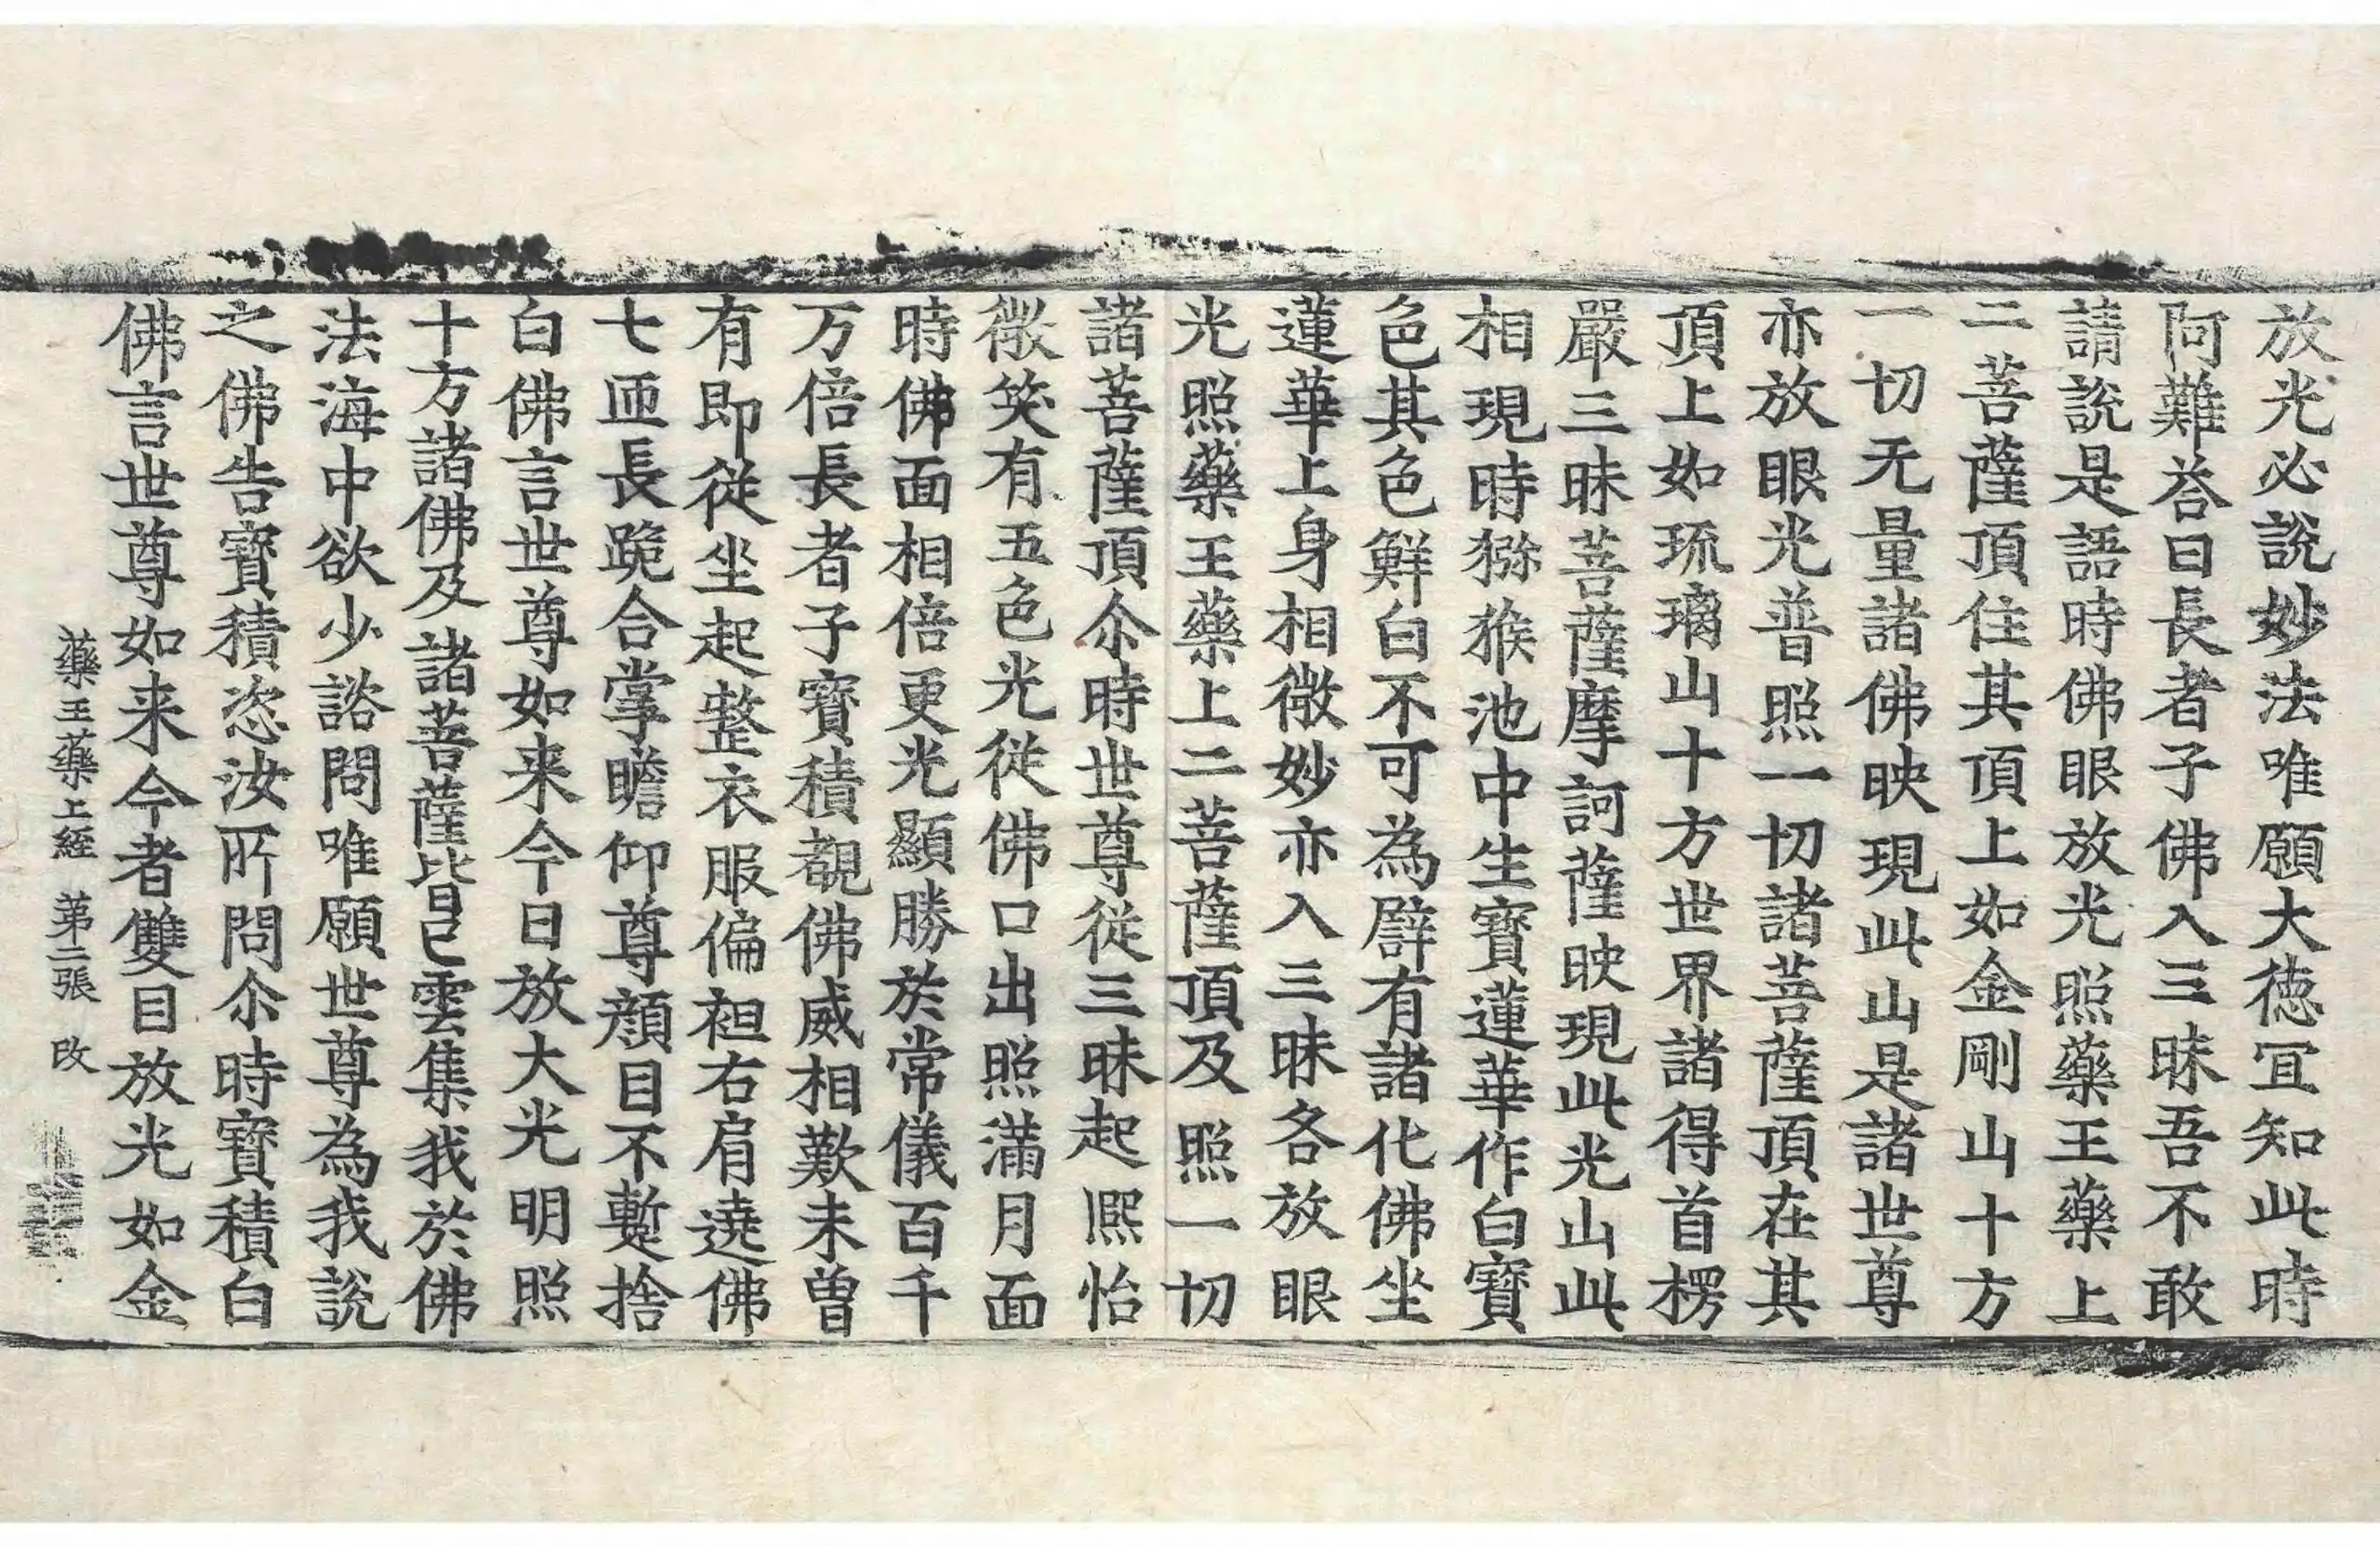 放光必說妙法唯願大德冝知此時
阿難荅曰長者子佛入三昧吾不敢
請說是語時佛眼放光照藥王藥上
二菩薩頂住其頂上如金剛山十方
一切无量諸佛映現此山是諸世尊
亦放眼光普照一切諸菩薩頂在其
頂上如琉璃山十方世界諸得首楞
嚴三昧菩薩摩訶薩映現此光山此
相現時獼猴池中生寶蓮華作白寶
色其色鮮白不可為譬有諸化佛坐
蓮華上身相微妙亦入三昧各放眼
光照藥王藥上二菩薩頂及照一切
諸菩薩頂尒時世尊從三昧起熈怡
微笑有五色光從佛口出照滿月面
時佛面相倍更光顯勝於常儀百千
万倍長者子寶積覩佛威相歎未曾
有即從坐起整衣服偏袒右肩遶佛
七匝長跪合掌瞻仰尊顔目不暫捨
白佛言世尊如来今日放大光明照
十方諸佛及諸菩薩皆已雲集我於佛
法海中欲少諮問唯願世尊為我說
之佛告寶積恣汝所問尒時寶積白
佛言世尊如来今者雙目放光如金
藥王藥上經 第二張 改